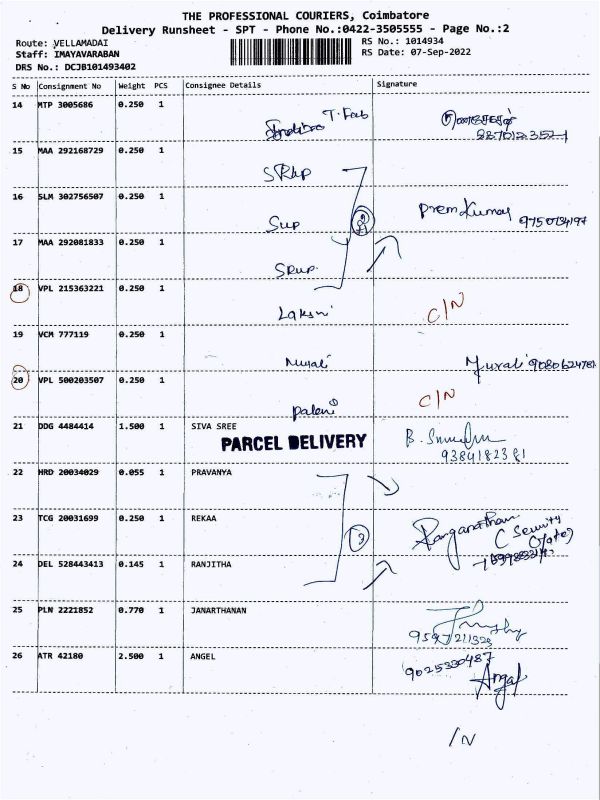 THE PROFESSIONAL COURIERS, Coimbatore
Delivery Runsheet - SPT - Phone No.:0422-3505555 - Page No.:2
Route: VELLAMADAI RS No.: 1014934
Staff: IMAYAVARABAN RS Date: 07-Sep-2022
DRS No.: DCJB101493402
S No Consignment No Weight PCS Consignee Details Signature
14 MTP 3005686 0.250 1 T. Fab
15 MAA 292168729 0.250 1
16 SLM 302756507 0.250 1 Sup Prem Kumar
17 MAA 292081833 0.250 1
18 VPL 215363221 0.250 1 Laksmi C/N
19 VCM 777119 0.250 1 Murali Murali
20 VPL 500203507 0.250 1 Palani C/N
21 DDG 4484414 1.500 1 SIVA SREE B.
PARCEL DELIVERY 9384182381
22 HRD 20034029 0.055 1 PRAVANYA
23 TCG 20031699 0.250 1 REKAA Ranganathan
3 (Security
Gate)
24 DEL 528443413 0.145 1 RANJITHA
25 PLN 2221852 0.770 1 JANARTHANAN
9597211329
26 ATR 42180 2.500 1 ANGEL 9025330487
Angal
/N